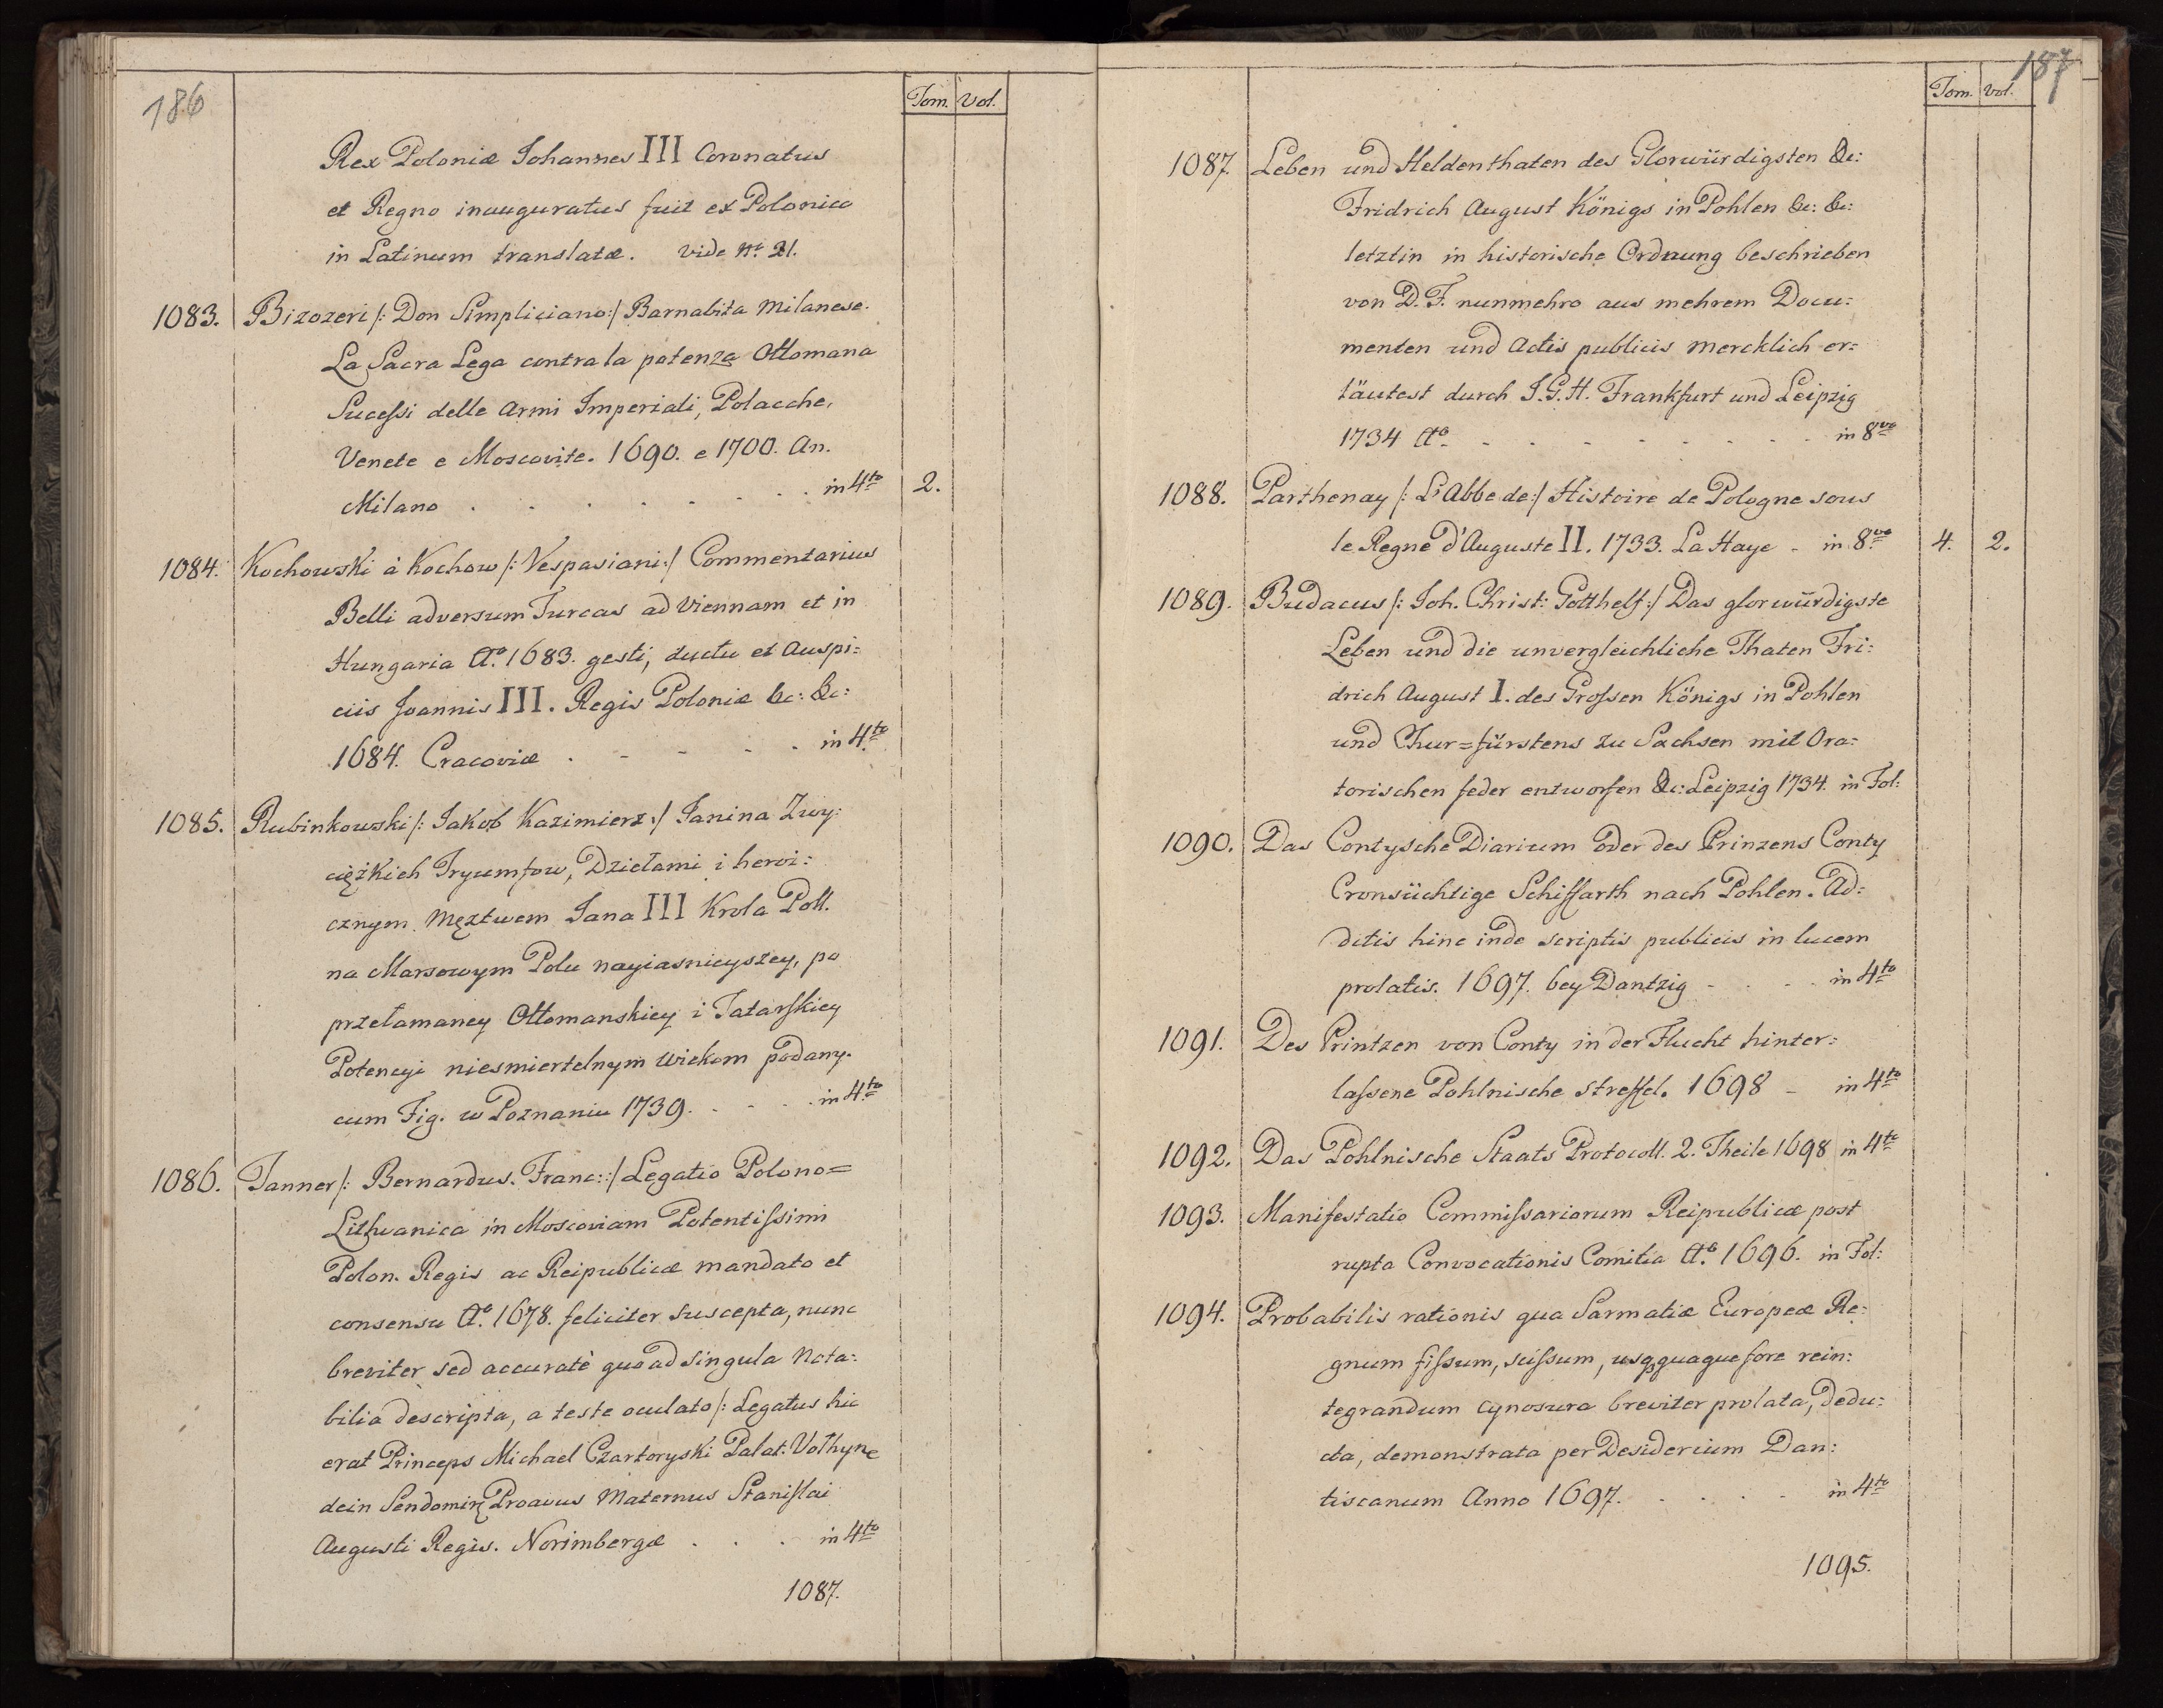 186
Tom. Vol.
Rex Poloniæ Johannes III Coronatus
et Regno inauguratus fuit ex Polonico
in Latinum translatæ. vide Nr. 21.
1083. Bizozeri /: Don Simpliciano :/ Barnabita Milanese.
La Sacra Lega contra la potenza Ottomana
Sucessi delle Armi Imperiali, Polacche,
Venete e Moscovite. 1690. e 1700. An.
Milano . . . . . . . in 4to 2.
1084. Kochowski à Kochow /: Vespasiani :/ Commentarius
Belli adversum Turcas ad Viennam et in
Hungaria Ao. 1683. gesti, ductu et Auspi:
ciis Joannis III. Regis Poloniæ &c: &c:
1684. Cracoviæ . - - . . in 4to
1085. Rubinkowski /: Jakob Kazimierz :/ Janina Zwy:
cięzkich Tryumfow, Dziełami i heroi:
cznym Męztwem Jana III Krola Poll.
na Marsowym Polu nayiasnieyszey, po
przełamaney Ottomanskiey i Tatarskiey
Potencyi niesmiertelnym wiekom podany.
cum Fig. w Poznaniu 1739. . - . . in 4to
1086. Tanner /: Bernardus. Franc: :/ Legatio Polono=
Lithuanica in Moscoviam Potentissimi
Polon. Regis ac Reipublicæ mandato et
consensu Ao. 1678. feliciter suscepta, nunc
breviter sed accuratè quo ad singula Nota:
bilia descripta, a teste oculato /: Legatus hic
erat Princeps Michael Czartoryski Palat: Volhyn
dein Sendomir Proavus Maternus Stanislai
Augusti Regis. Norimbergæ . . . in 4to
1087.
187
Tom. Vol.
1087. Leben und Heldenthaten des Glorwürdigsten &c:
Fridrich August Königs in Pohlen &c: &c:
letztin in historische Ordnung beschrieben
von D. F. nunmehro aus mehrem Docu:
menten und Actis publicis mercklich er:
läutest durch J. G. H. Frankfurt und Leipzig
1734 Ao. - - - - - - - in 8vo
1088. Parthenay /: L'Abbe de :/ Histoire de Pologne sous
le Regne d'Auguste II. 1733. La Haye - in 8vo 4. 2.
1089. Budacus /: Joh. Christ: Gotthelf :/ Das glorwürdigste
Leben und die unvergleichliche Thaten Fri:
drich August I. des Grossen Königs in Pohlen
und Chur=fürstens zu Sachsen mit Ora:
torischen feder entworfen &c: Leipzig 1734. in Fol:
1090. Das Contysche Diarium oder des Prinzens Conty
Cronsüchtige Schiffarth nach Pohlen. Ad:
ditis hinc inde scriptis publicis in lucem
prolatis. 1697. bey Dantzig - . . . in 4to
1091. Des Printzen von Conty in der Flucht hinter:
lassene Pohlnische Streffel. 1698 - in 4to
1092. Das Pohlnische Staats Protocoll. 2. Theile 1698 in 4to
1093. Manifestatio Commissariorum Reipublicæ post
rupta Convocationis Comitia Ao. 1696. in Fol:
1094. Probabilis rationis qua Sarmatiæ Europeæ Re:
gnum fissum, scissum, usqquaque fore rein:
tegrandum Cynosura breviter prolata, dedu:
cta, demonstrata per Desiderium Dan:
tiscanum Anno 1697. . . . - in 4to
1095.